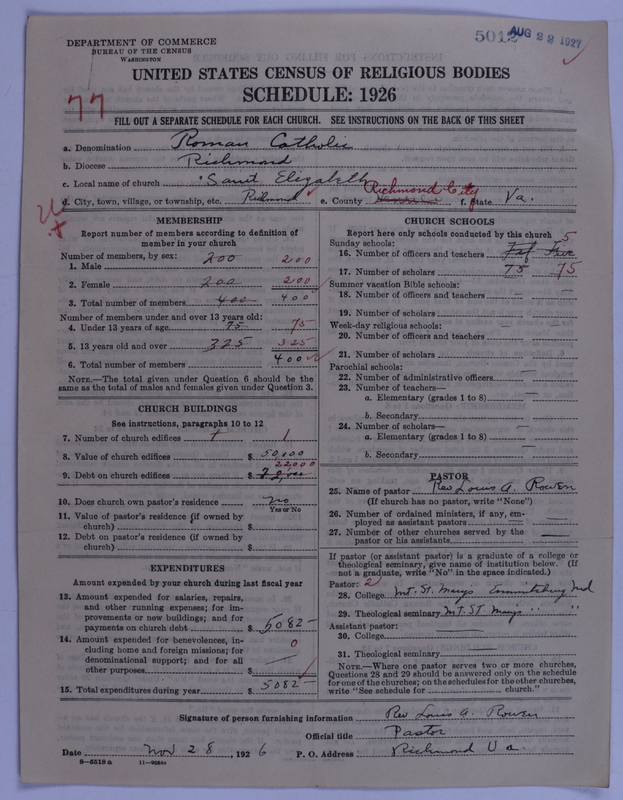 DEPARTMENT OF COMMERCE
BUREAU OF THE CENSUS
WASHINGTON
5012 AUG 22 1927
UNITED STATES CENSUS OF RELIGIOUS BODIES
SCHEDULE: 1926
77
FILL OUT A SEPARATE SCHEDULE FOR EACH CHURCH. SEE INSTRUCTIONS ON THE BACK OF THIS SHEET
a. Denomination Roman Catholic
b. Diocese Richmond
c. Local name of church Saint Elizabeth
d. City, town, village, or township, etc. Richmond e. County Richmond City f. State Va.
MEMBERSHIP
Report number of members according to definition of
member in your church
Number of members, by sex:
1. Male 200 200
2. Female 200 200
3. Total number of members 400 400
Number of members under and over 13 years old:
4. Under 13 years of age 75 75
5. 13 years old and over 325 325
6. Total number of members 400
NOTE.—The total given under Question 6 should be
same as the total of males and females given under Question 3.
CHURCH BUILDINGS
See instructions, paragraphs 10 to 12
7. Number of church edifices 1
8. Value of church edifices $ 50,000
9. Debt on church edifices $ 22000
10. Does church own pastor's residence No
Yes or No
11. Value of pastor's residence (if owned by
church) $
12. Debt on pastor's residence (if owned by
church) $
EXPENDITURES
Amount expended by your church during last fiscal year
13. Amount expended for salaries, repairs,
and other running expenses; for im-
provements or new buildings; and for
payments on church debt $ 5082-
14. Amount expended for benevolences, in-
cluding home and foreign missions; for
denominational support; and for all
other purposes $ 0
15. Total expenditures during year $ 5082-
CHURCH SCHOOLS
Report here only schools conducted by this church
Sunday schools:
16. Number of officers and teachers Five 5
17. Number of scholars 75 75
Summer vacation Bible schools:
18. Number of officers and teachers
19. Number of scholars
Week-day religious schools:
20. Number of officers and teachers
21. Number of scholars
Parochial schools:
22. Number of administrative officers
23. Number of teachers—
a. Elementary (grades 1 to 8)
b. Secondary
24. Number of scholars—
a. Elementary (grades 1 to 8)
b. Secondary
PASTOR
25. Name of pastor Rev Louis A. Rowen
(If church has no pastor, write "None")
26. Number of ordained ministers, if any, em-
ployed as assistant pastors
27. Number of other churches served by the
pastor or his assistants
If pastor (or assistant pastor) is a graduate of a college or
theological seminary, give name of institution below. (If
not a graduate, write "No" in the space indicated.)
Pastor: 2
28. College Mt. St. Marys Emmitsburg Md
29. Theological seminary Mt. St Marys " "
Assistant pastor:
30. College
31. Theological seminary
NOTE.—Where one pastor serves two or more churches,
Questions 28 and 29 should be answered only on the schedule
for one of the churches; on the schedules for the other churches,
write "See schedule for church."
Signature of person furnishing information Rev Louis A. Rowen
Official title Pastor
Date Nov 28, 1926 P. O. Address Richmond Va.
8-5518a